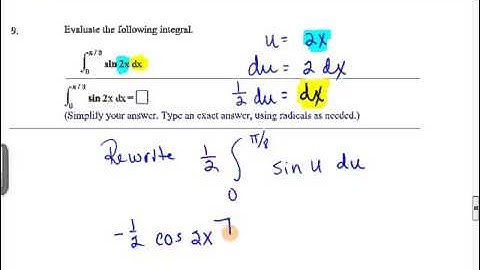 9. Evaluate the following integral.
∫₀^π/8 sin 2x dx
∫₀^π/8 sin 2x dx = □
(Simplify your answer. Type an exact answer, using radicals as needed.)
u = 2x
du = 2 dx
1/2 du = dx
Rewrite 1/2 ∫₀^π/8 sin u du
-1/2 cos 2x